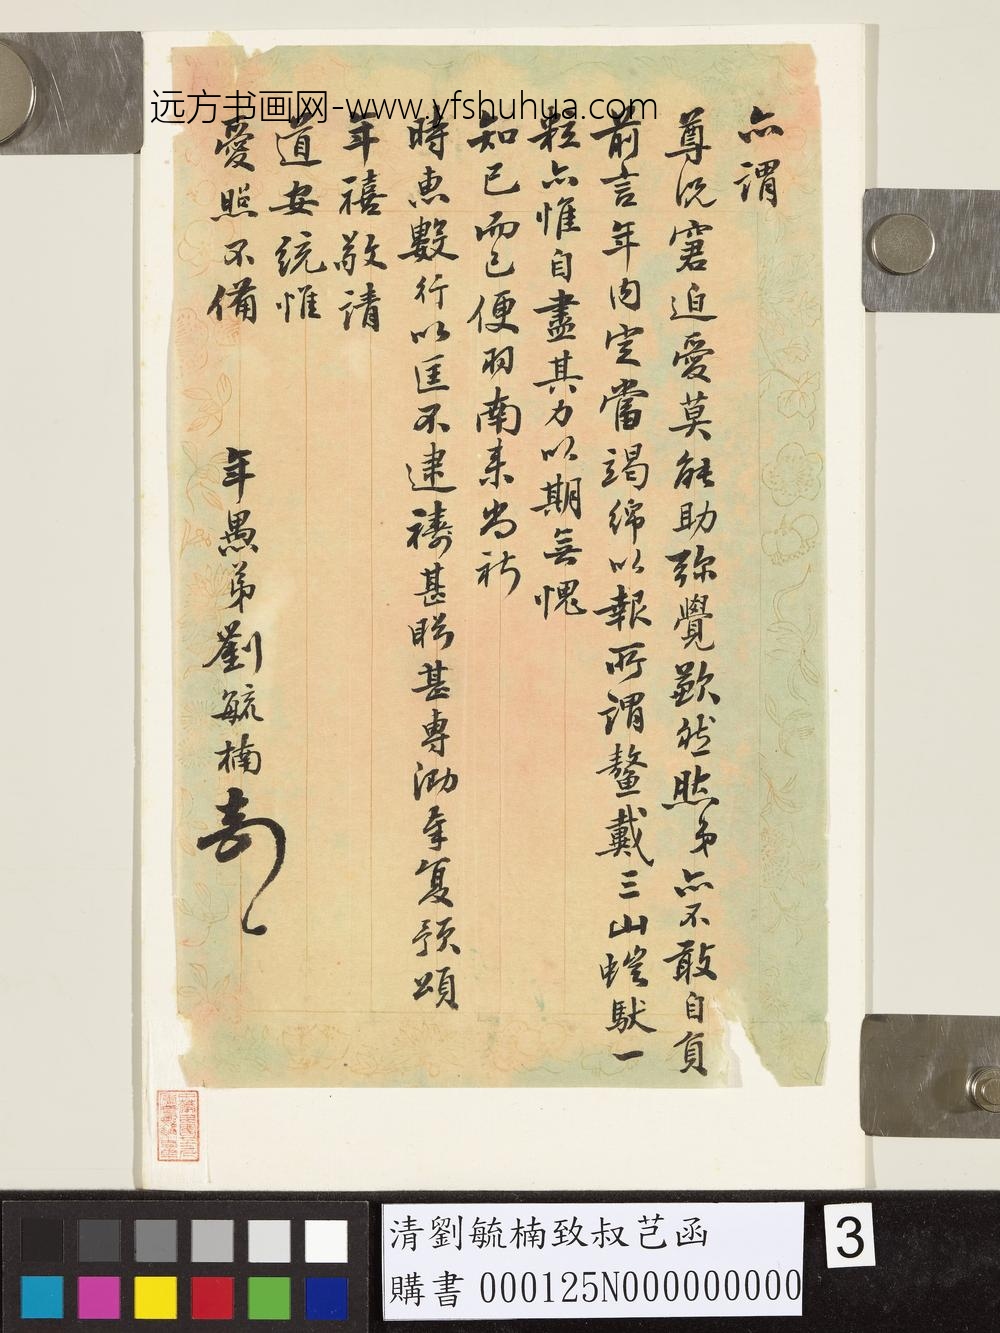 远方书画网-www.yfshuhua.com
亦謂
尊況窘迫愛莫能助殊覺歉然然弟亦不敢自負
前言年内定當竭綿以報所謂鰲戴三山蟻馱一
粒亦惟自盡其力以期無愧
知己而已便羽南來尚祈
時惠數行以匡不逮禱甚盼甚專泐奉复預頌
年禧敬請
道安統惟
愛照不備
年愚弟劉毓楠
清劉毓楠致叔芑函
購書 000125N000000000
3